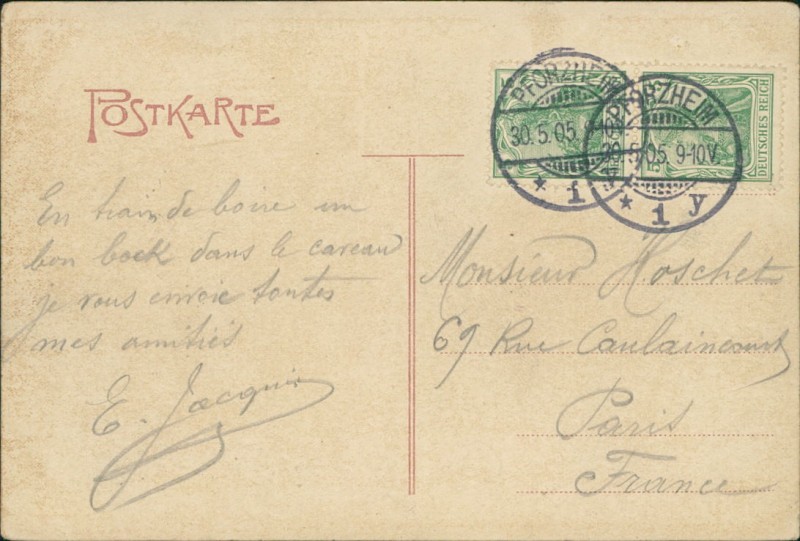 POSTKARTE
PFORZHEIM
30.5.05.
* 1
PFORZHEIM
30.5.05. 9-10V.
* 1 y
DEUTSCHES REICH
En train de boire un
bon bock dans le caveau
je vous envoie toutes
mes amitiés
E. Jacquin
Monsieur Hoschet
69 Rue Caulaincourt
Paris
France